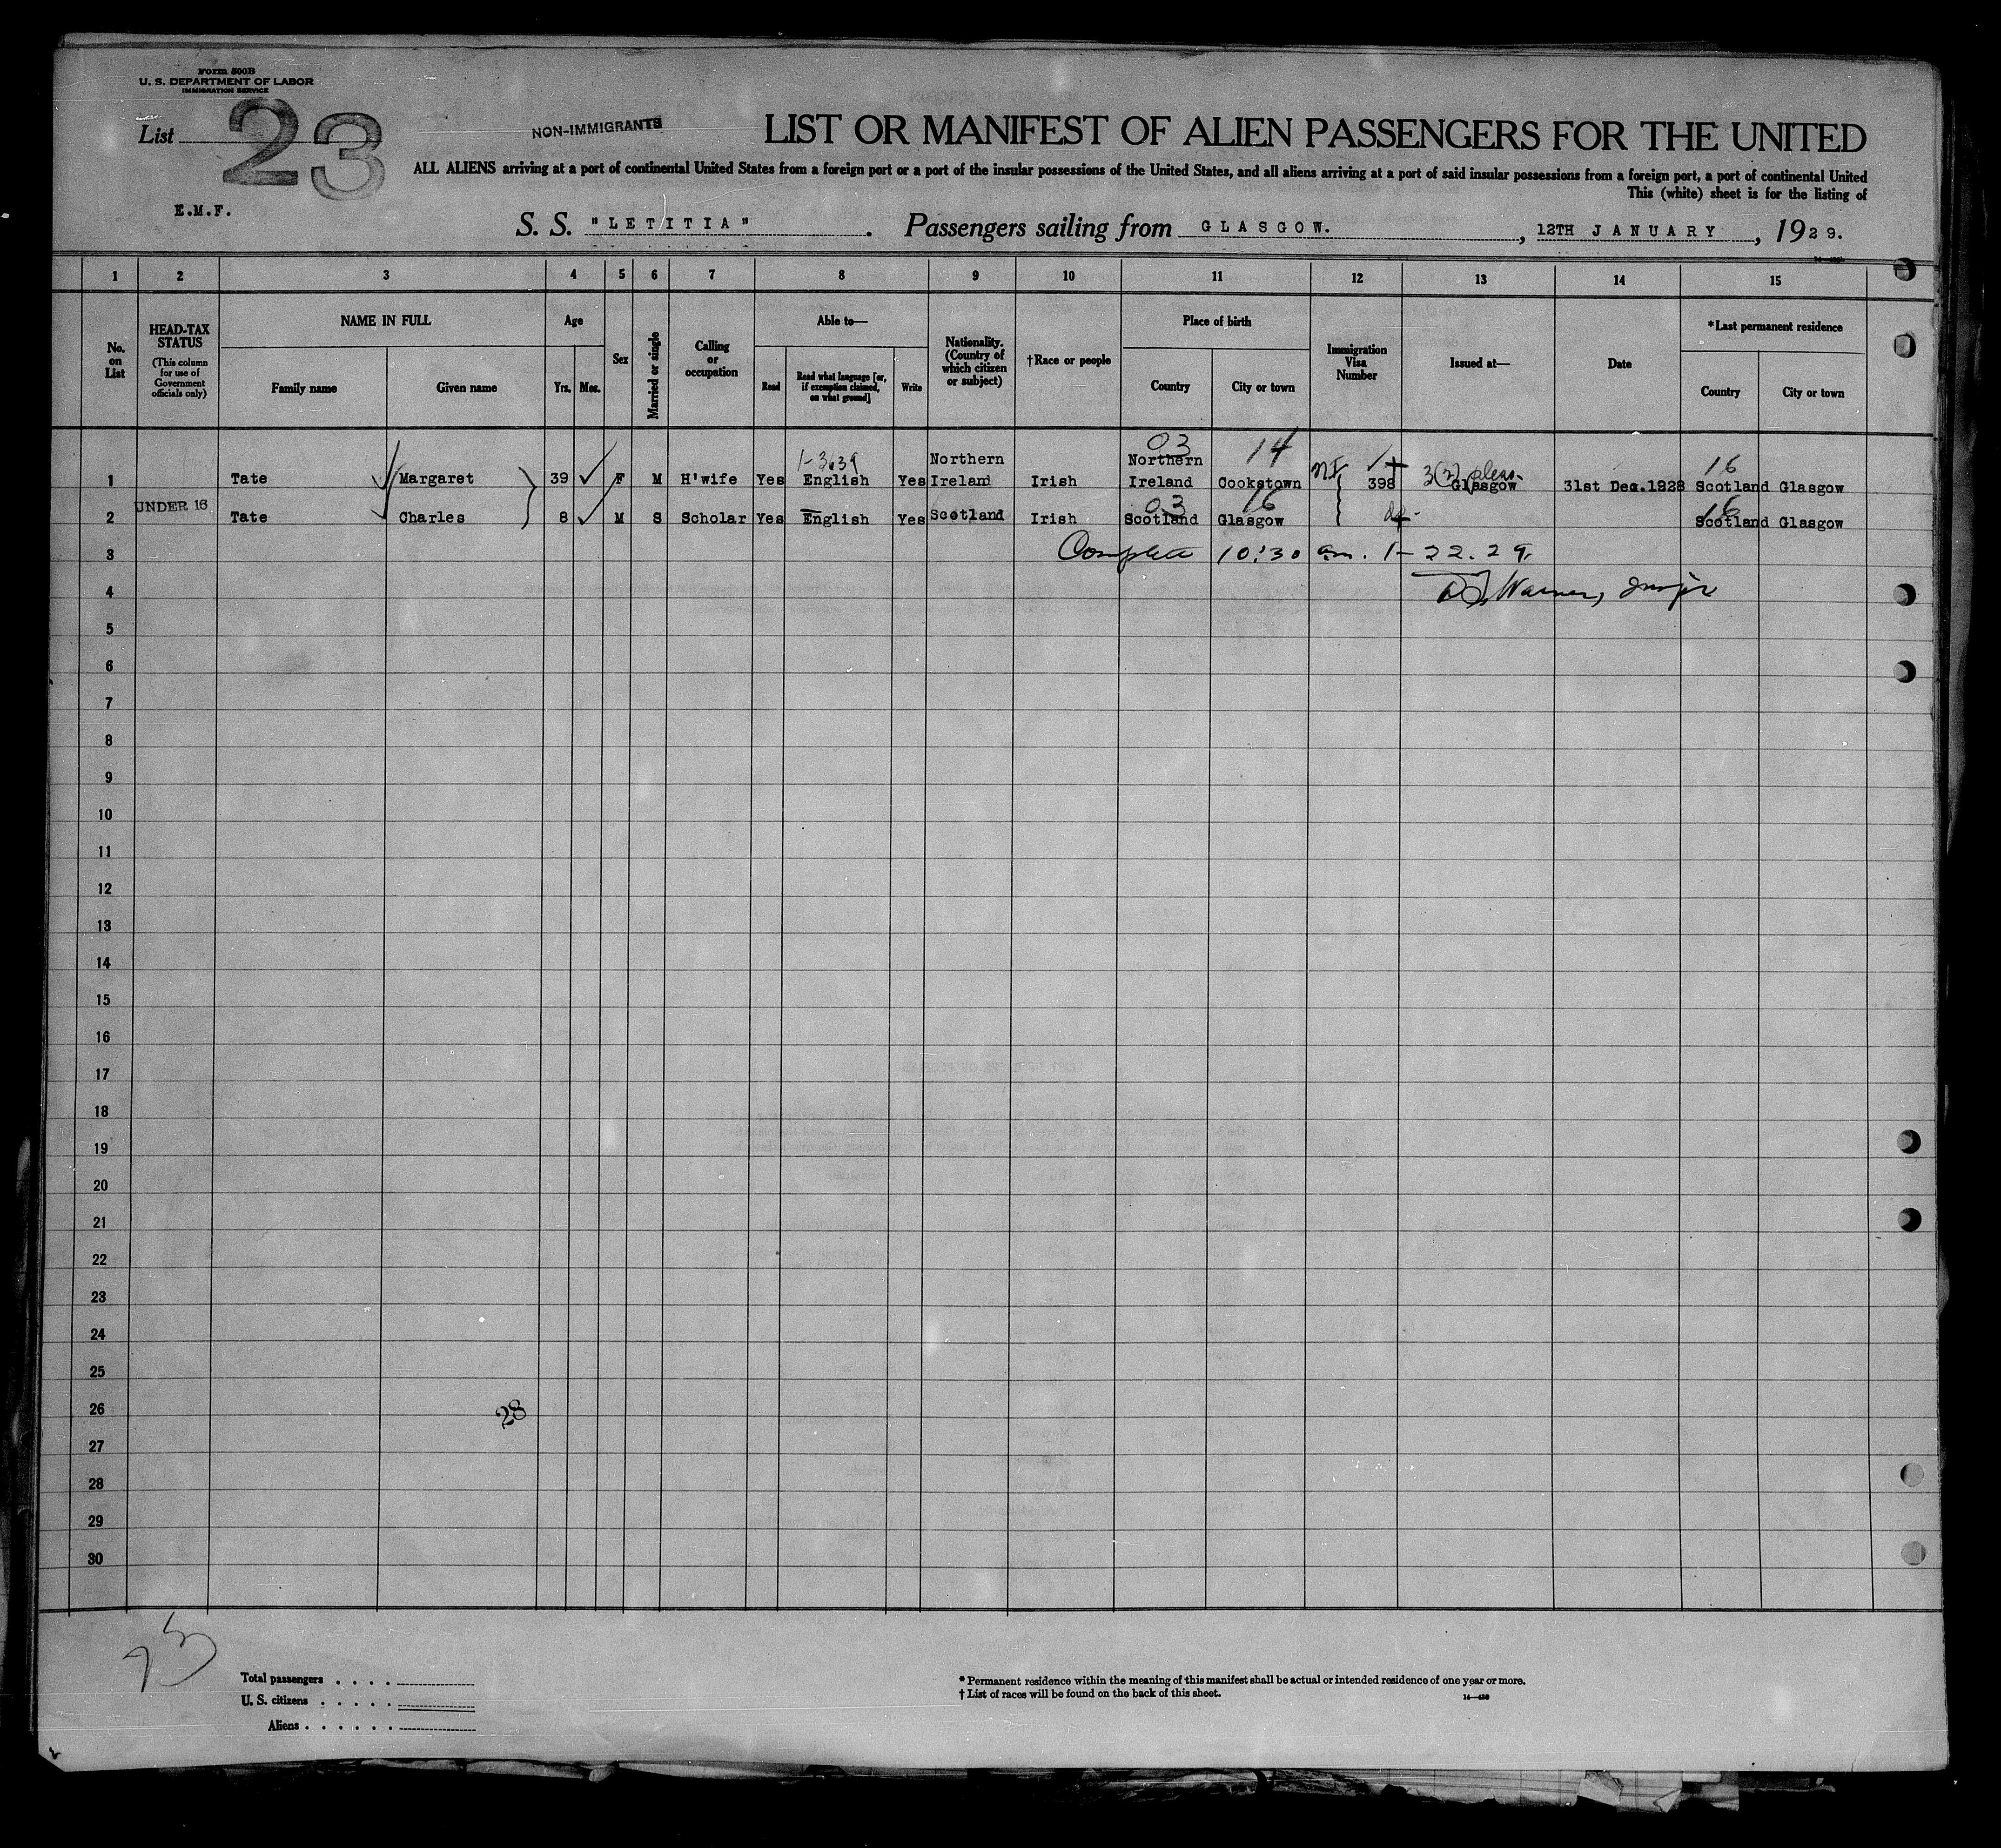 Form 500B
U. S. DEPARTMENT OF LABOR
IMMIGRATION SERVICE
List 23
NON-IMMIGRANTS
LIST OR MANIFEST OF ALIEN PASSENGERS FOR THE UNITED
ALL ALIENS arriving at a port of continental United States from a foreign port or a port of the insular possessions of the United States, and all aliens arriving at a port of said insular possessions from a foreign port, a port of continental United
This (white) sheet is for the listing of
E.M.F.
S. S. "LETITIA". Passengers sailing from GLASGOW., 12TH JANUARY, 1929.
1 2 3 4 5 6 7 8 9 10 11 12 13 14 15
No. on List
HEAD-TAX STATUS
(This column for use of Government officials only)
NAME IN FULL
Family name
Given name
Age
Yrs.
Mos.
Sex
Married or single
Calling or occupation
Able to—
Read
Read what language [or, if exemption claimed, on what ground]
Write
Nationality. (Country of which citizen or subject)
†Race or people
Place of birth
Country
City or town
Immigration Visa Number
Issued at—
Date
*Last permanent residence
Country
City or town
03 14
1-3639 Northern Northern 16
1 Tate Margaret 39 F M H'wife Yes English Yes Ireland Irish Ireland Cookstown 398 Glasgow 31st Dec.1928 Scotland Glasgow
UNDER 16 03 16 16
2 Tate Charles 8 M S Scholar Yes English Yes Scotland Irish Scotland Glasgow Scotland Glasgow
3 Complete 10:30 am. 1-22.29
4 Warner,
5
6
7
8
9
10
11
12
13
14
15
16
17
18
19
20
21
22
23
24
25
26 28
27
28
29
30
Total passengers
U. S. citizens
Aliens
* Permanent residence within the meaning of this manifest shall be actual or intended residence of one year or more.
† List of races will be found on the back of this sheet.